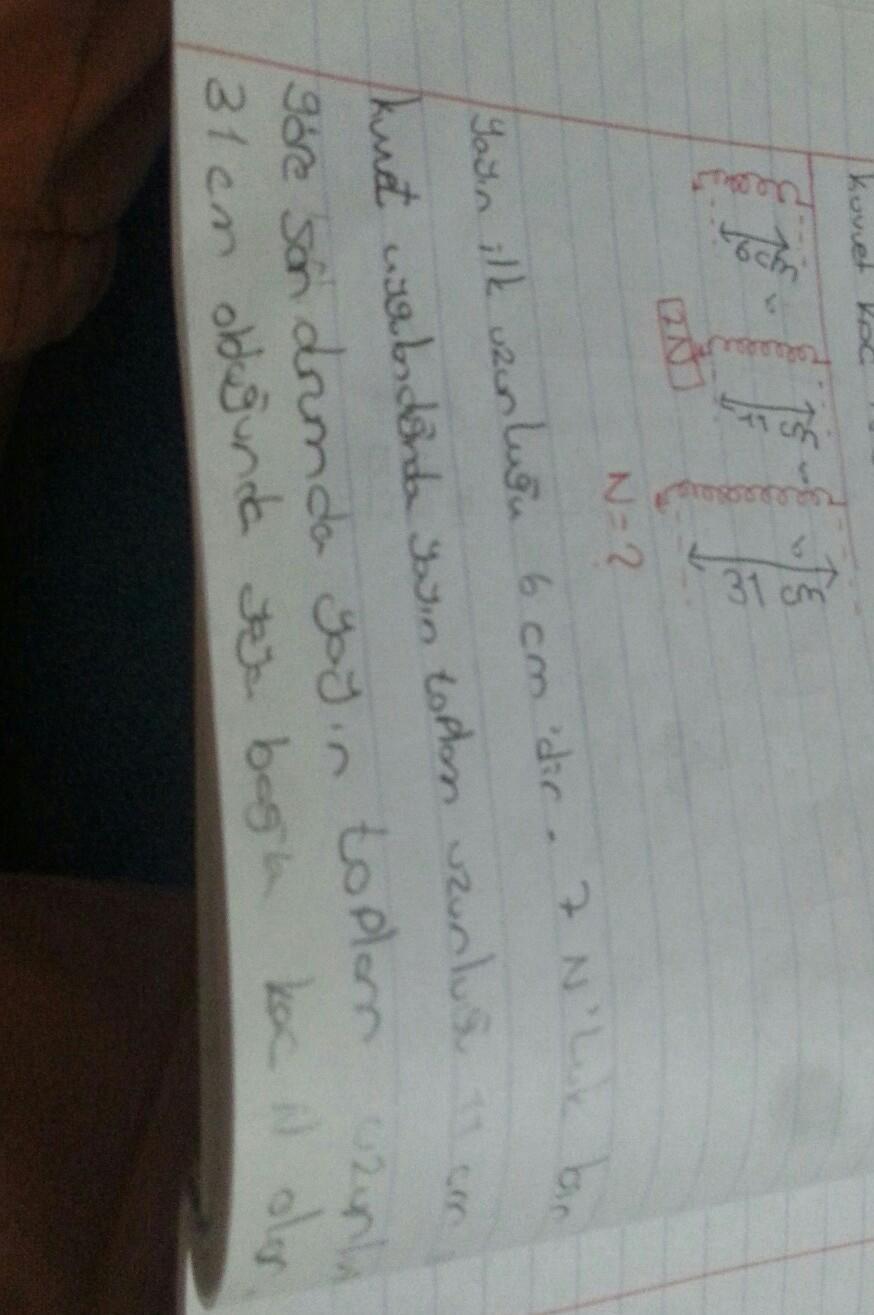 kuvvet kaç
6 cm
11 cm
31 cm
7N
N=?
Yayın ilk uzunluğu 6 cm'dir. 7 N'luk bir
kuvvet uygulandığında yayın toplam uzunluğu 11 cm
göre son durumda yayın toplam uzunlu
31 cm olduğunda yaya bağlı kaç N olur